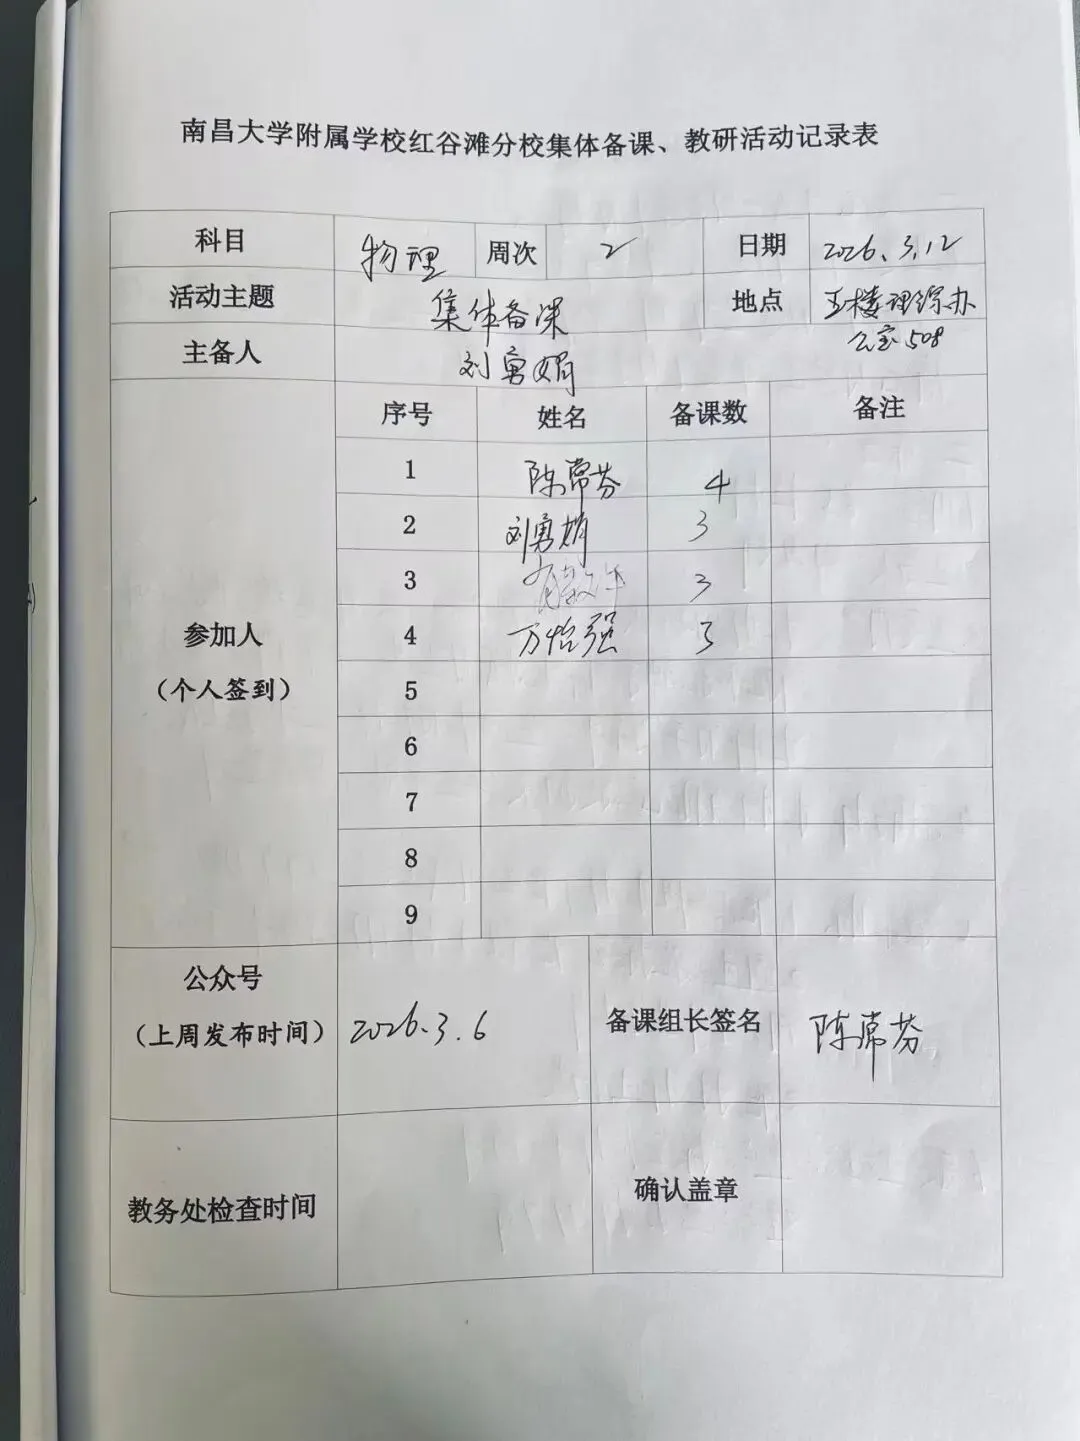 南昌大学附属学校红谷滩分校集体备课、教研活动记录表
科目 物理 周次 2 日期 2026.3.12
活动主题 集体备课 地点 楼理综办
公室508
主备人 刘勇娟
序号 姓名 备课数 备注
1 陈常芬 4
2 刘勇娟 3
3 3
4 万怡强 3
参加人
(个人签到)
5
6
7
8
9
公众号
(上周发布时间) 2026.3.6 备课组长签名 陈常芬
教务处检查时间 确认盖章